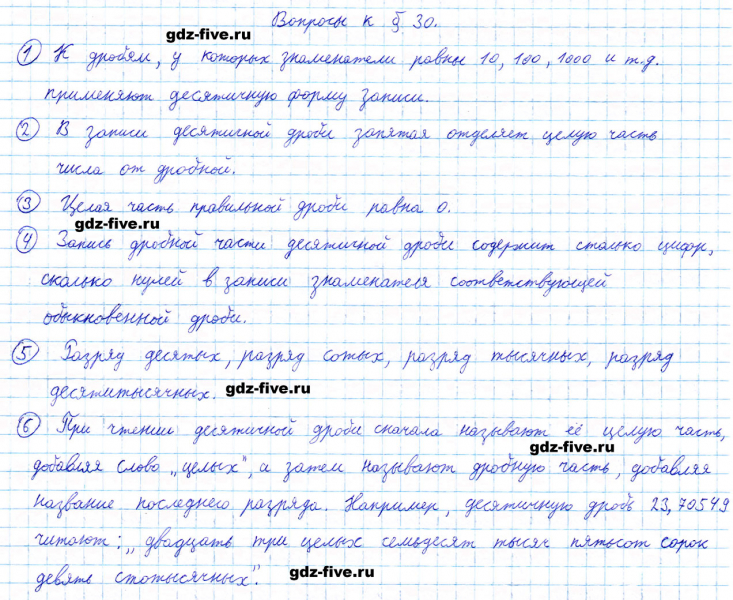 Вопросы к § 30.
gdz-five.ru
① К дробям, у которых знаменатели равны 10, 100, 1000 и т.д.
применяют десятичную форму записи.
② В записи десятичной дроби запятая отделяет целую часть
числа от дробной.
③ Целая часть правильной дроби равна 0.
gdz-five.ru
④ Запись дробной части десятичной дроби содержит столько цифр,
сколько нулей в записи знаменателя соответствующей
обыкновенной дроби.
⑤ Разряд десятых, разряд сотых, разряд тысячных, разряд
десятитысячных.
gdz-five.ru
⑥ При чтении десятичной дроби сначала называют её целую часть,
gdz-five.ru
добавляя слово „целых", а затем называют дробную часть, добавляя
название последнего разряда. Например, десятичную дробь 23,70549
читают: „двадцать три целых семьдесят тысяч пятьсот сорок
девять стотысячных".
gdz-five.ru